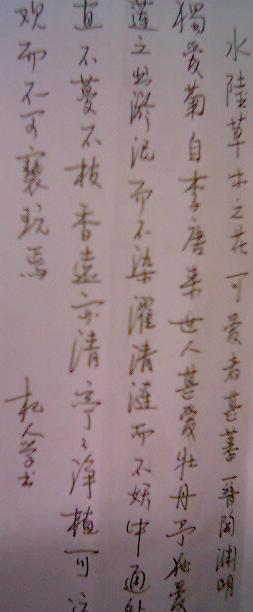 水陸草木之花可爱者甚蕃晋陶渊明
獨爱菊自李唐来世人甚爱牡丹予独爱
莲之出淤泥而不染濯清涟而不妖中通外
直不蔓不枝香遠亦清亭々净植可远
观而不可褻玩焉
人学书